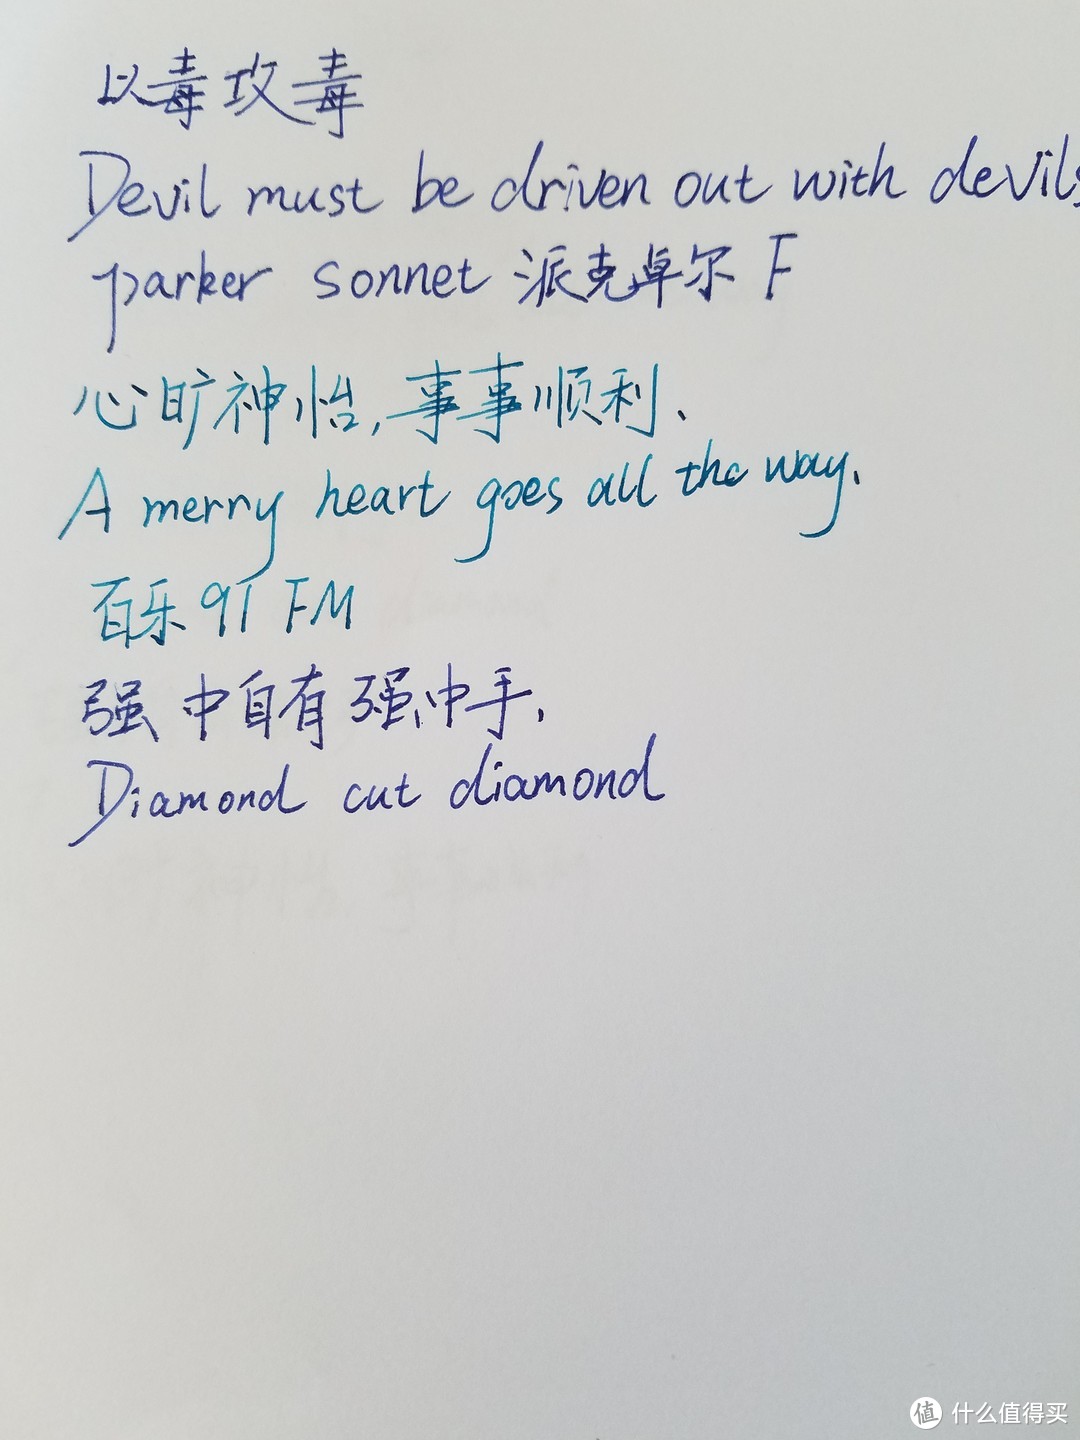 以毒攻毒
Devil must be driven out with devils
parker sonnet 派克卓尔 F
心旷神怡,事事顺利、
A merry heart goes all the way.
百乐 91 FM
强中自有强中手,
Diamond cut diamond
值 什么值得买